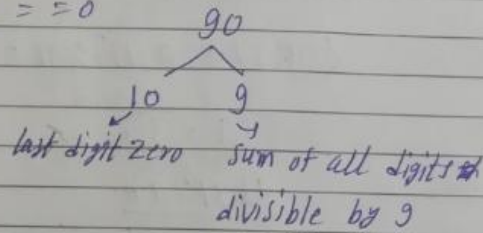 = = 0
90
10 9
last digit zero sum of all digits
divisible by 9